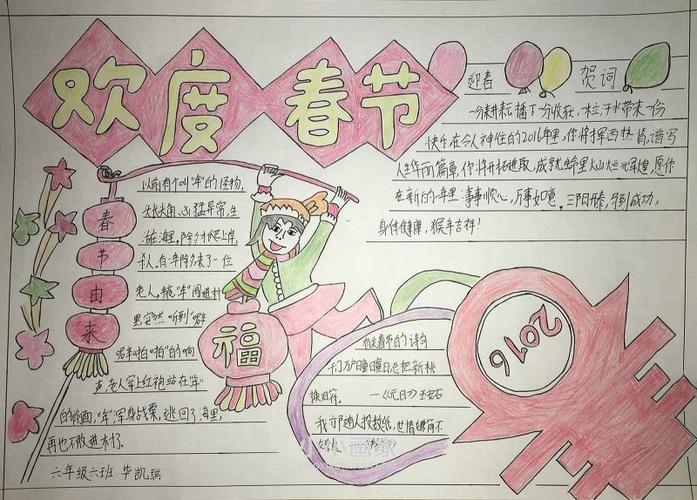 欢度春节
迎春 贺词
一分耕耘播下一分收获,一粒汗水带来一份
快乐,在令人神往的2016年里,你将挥洒热情,谱写
人生华丽篇章,你将开拓进取,成就
在新的一年里:事事顺心,万事如意,三阳开泰,马到成功,
身体健康,猴年吉祥!
春节由来
以前有个叫"年"的怪物,
头长大角,凶猛异常,生
活在海里,除夕才爬上岸,
杀人,有一年除夕来了一位
老人,半夜"年"闯进村
里,突然听到"噼
啪啪"的响
声,老人穿上红袍站在"年"
的前面,"年"浑身战栗,逃回了海里,
再也不敢进村了。
福
2016
春节的诗句
千门万户曈曈日,总把新桃
换旧符。 ——《元日》王安石
六年级六班 毕凯瑞